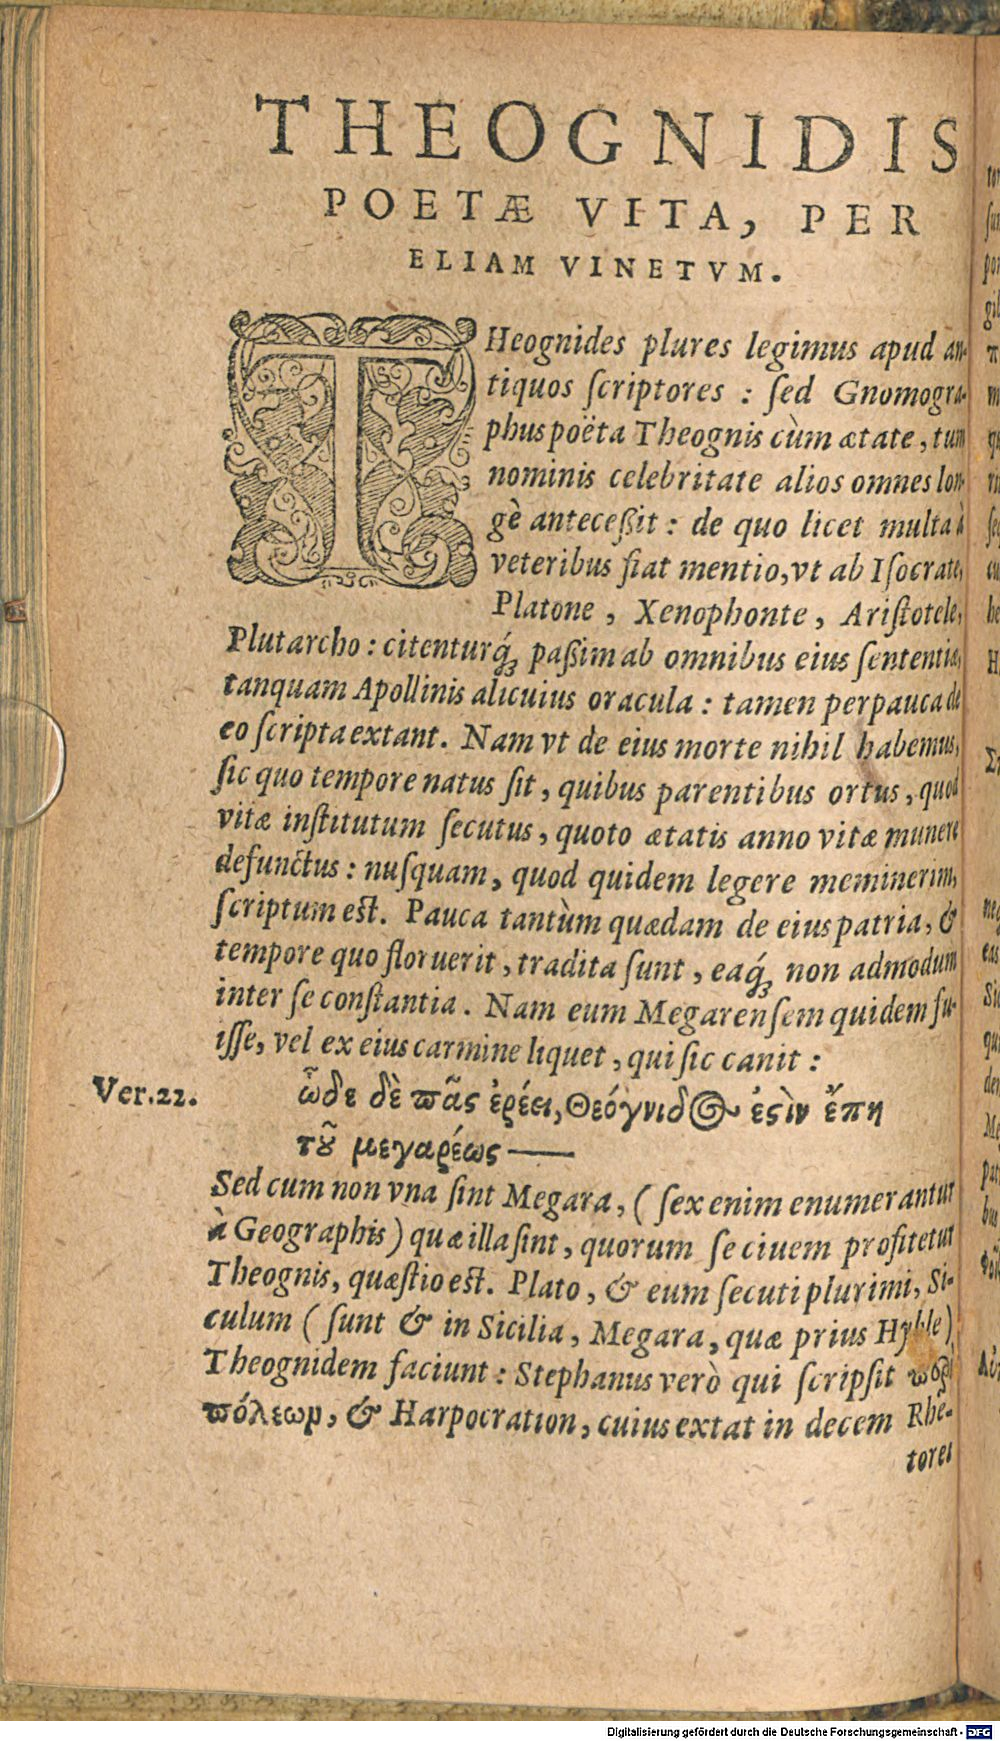 THEOGNIDIS
POETÆ VITA, PER
ELIAM VINETVM.
THeognides plures legimus apud an-
tiquos ſcriptores : ſed Gnomogra-
phus poëta Theognis cùm ætate, tum
nominis celebritate alios omnes lon-
gè anteceßit : de quo licet multa à
veteribus fiat mentio, vt ab Iſocrate,
Platone , Xenophonte , Ariſtotele,
Plutarcho : citenturq́ꝫ paßim ab omnibus eius ſententiæ,
tanquam Apollinis alicuius oracula : tamen perpauca de
eo ſcripta extant. Nam vt de eius morte nihil habemus,
ſic quo tempore natus ſit , quibus parentibus ortus , quod
vitæ inſtitutum ſecutus , quoto ætatis anno vitæ munere
defunctus : nuſquam, quod quidem legere meminerim,
ſcriptum eſt. Pauca tantùm quædam de eius patria, &
tempore quo floruerit , tradita ſunt , eaq́ꝫ non admodum
inter ſe conſtantia. Nam eum Megarenſem quidem fu-
iſſe, vel ex eius carmine liquet , qui ſic canit :
Ver.22. ὧδε δὲ πᾶς ἐρέει, Θεόγνιδος ἐςὶν ἔπη
τȣ͂ μεγαρέως ——
Sed cum non vna ſint Megara, ( ſex enim enumerantur
à Geographis ) quæ illa ſint , quorum ſe ciuem profitetur
Theognis, quæſtio eſt. Plato , & eum ſecuti plurimi, Si-
culum ( ſunt & in Sicilia, Megara, quæ prius Hyble )
Theognidem faciunt : Stephanus verò qui ſcripſit περὶ
πόλεων, & Harpocration, cuius extat in decem Rhe-
tores
Digitalisierung gefördert durch die Deutsche Forschungsgemeinschaft - DFG